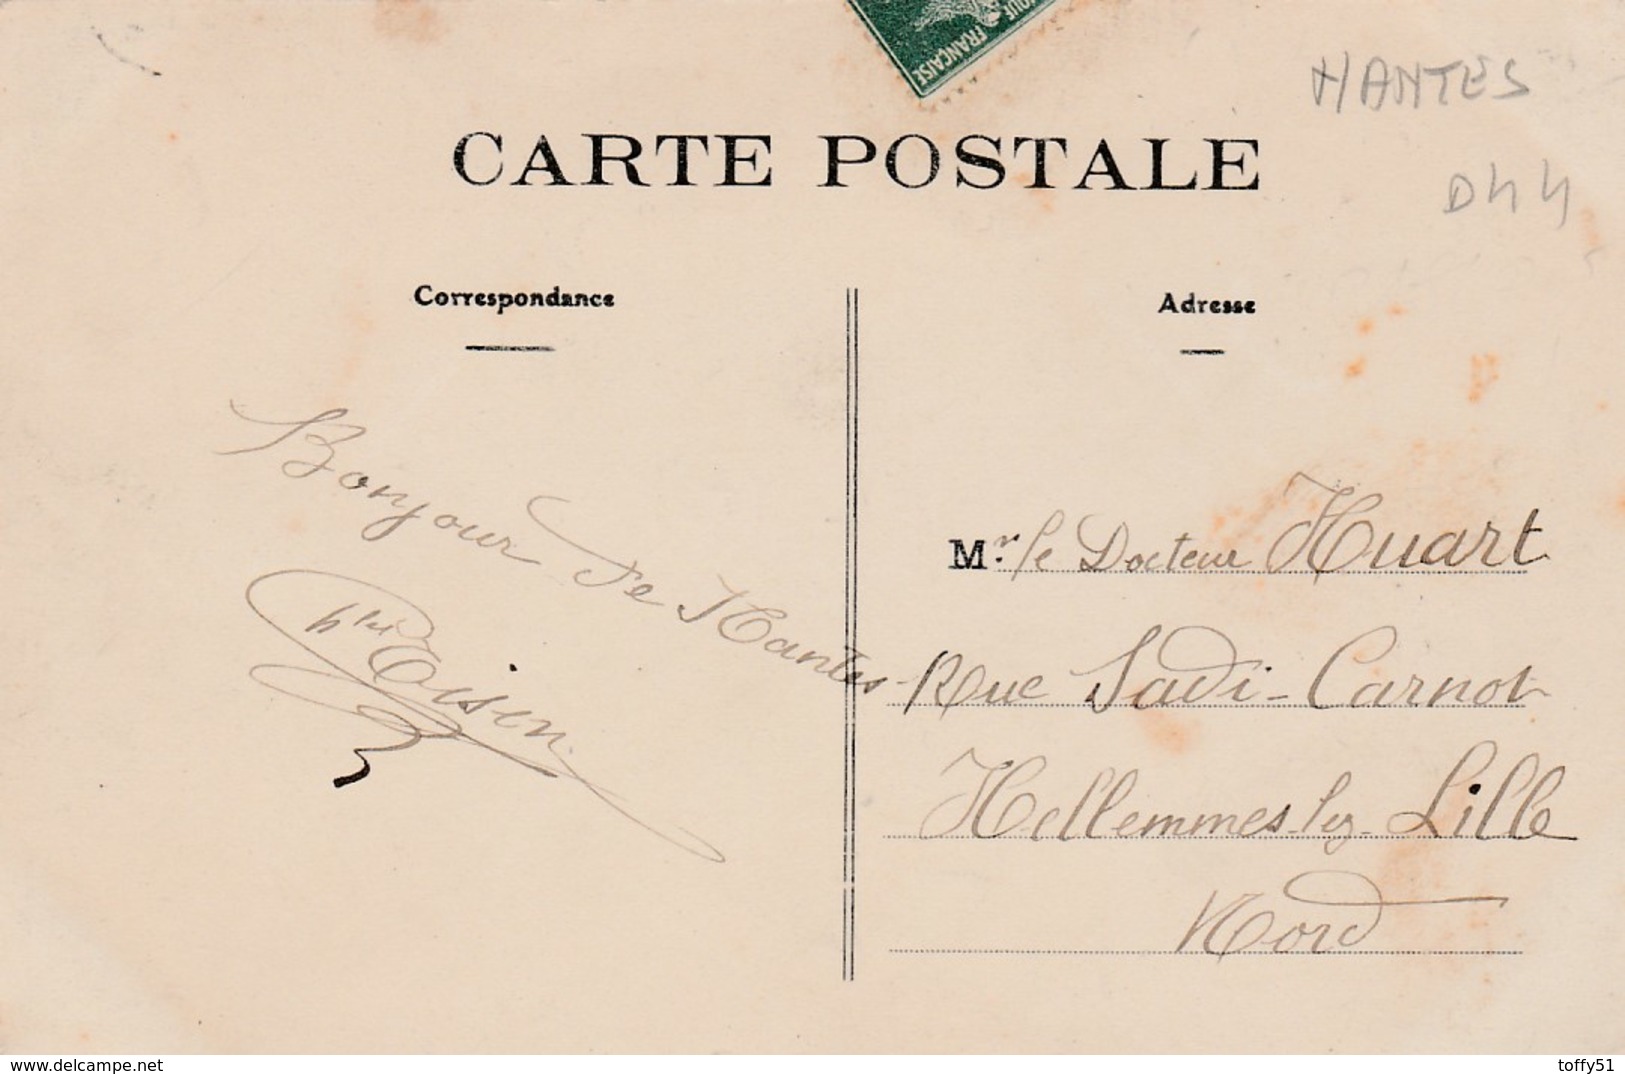 QUE FRANÇAISE
NANTES
D44
CARTE POSTALE
Correspondance
Adresse
Bonjour de Nantes
Oisen
Mr. le Docteur Huart
Rue Sadi-Carnot
Hellemmes-lez-Lille
Nord
www.delcampe.net
toffy51